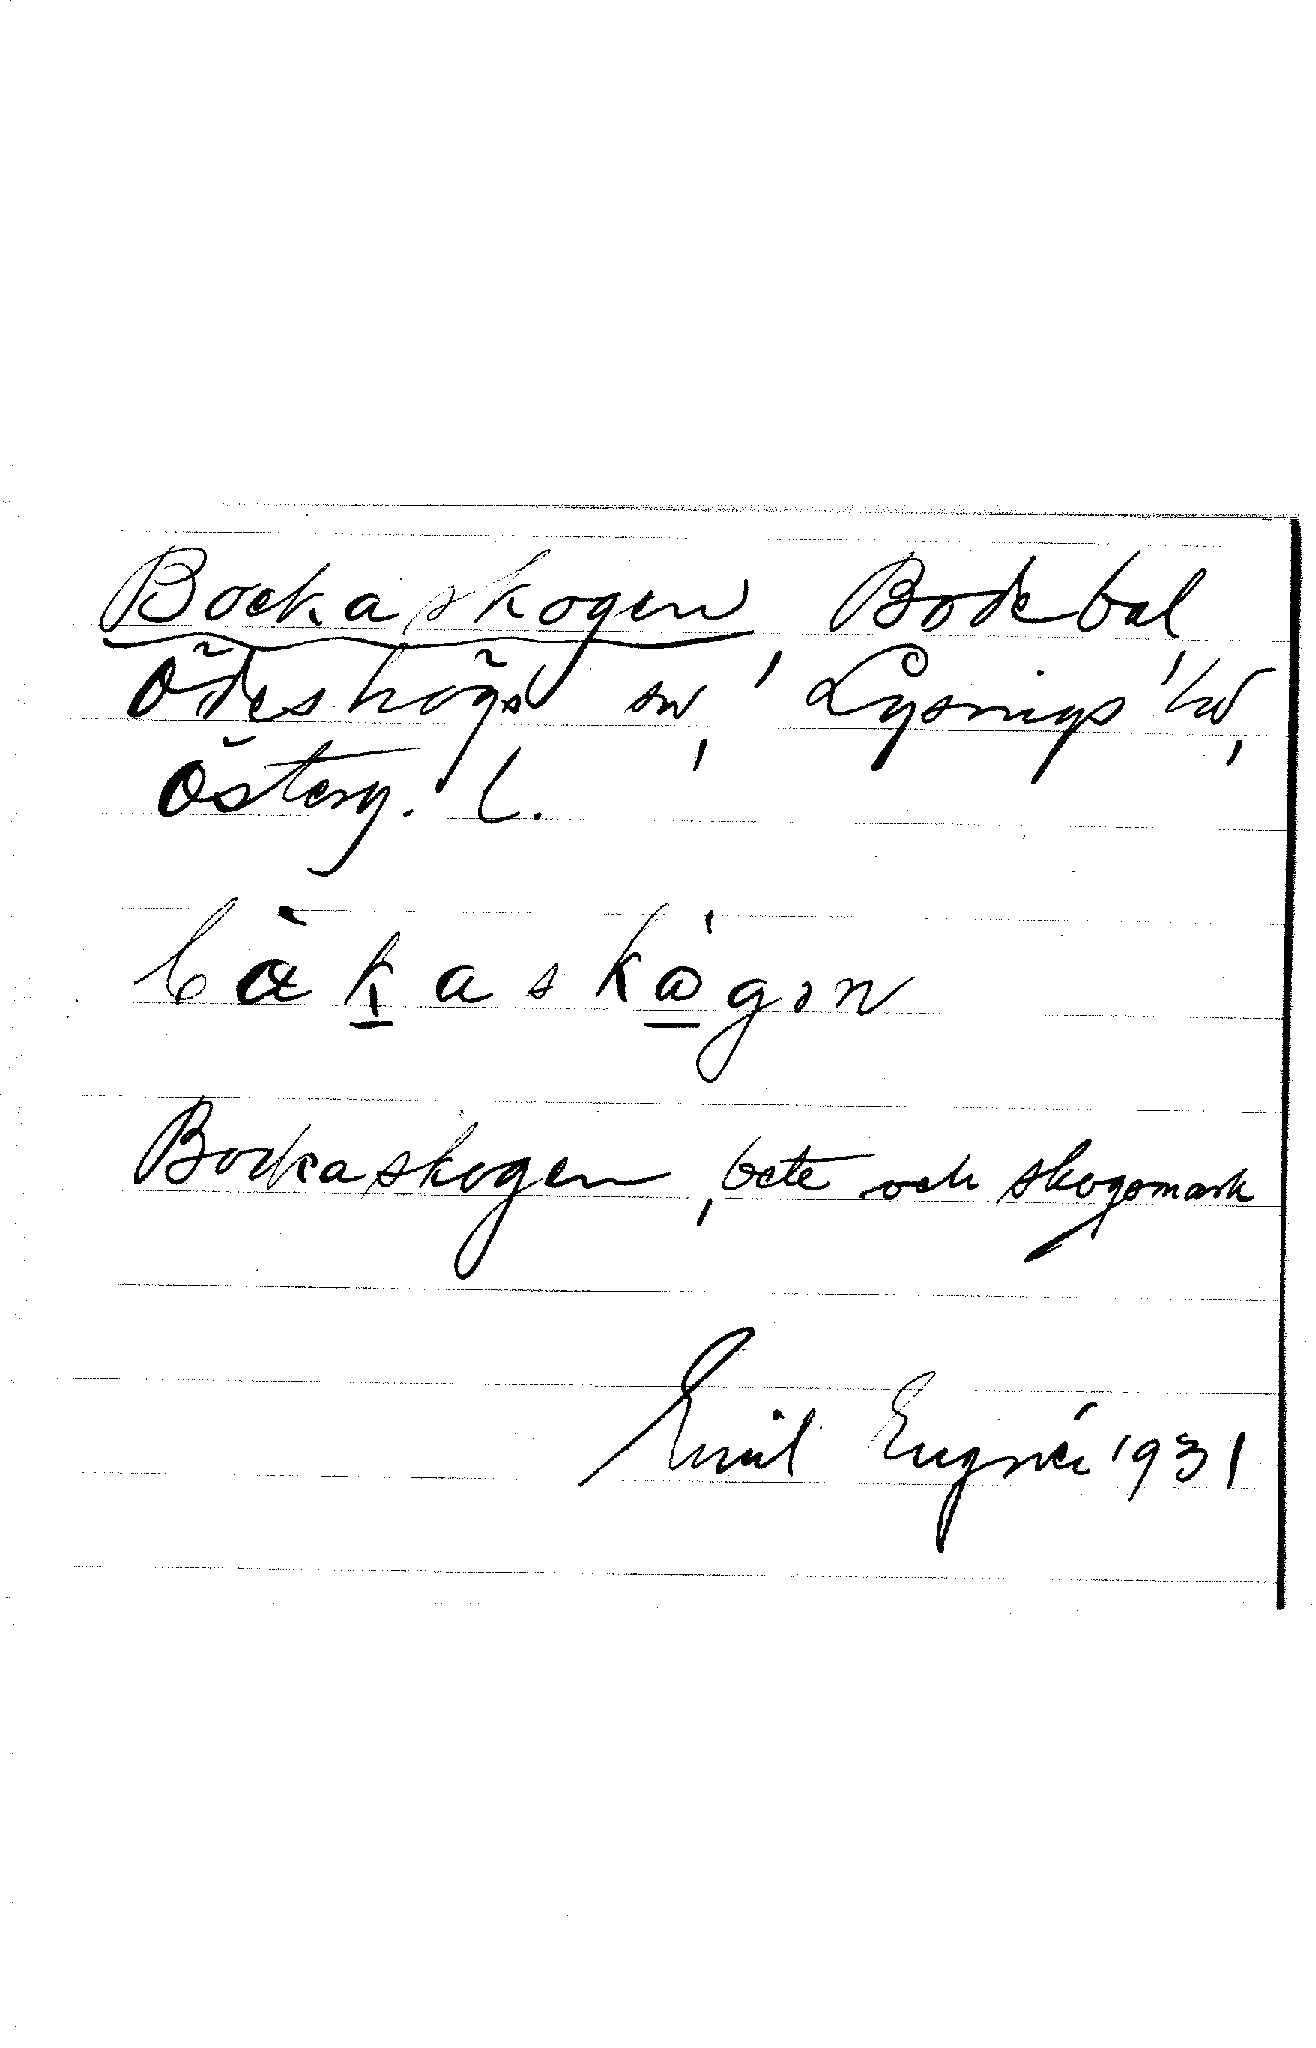 Bockaskogen, Bodebol,
Ödeshögs sn, Lysings hd,
Österg. l.
bàkaskågən
Bockaskogen, bete och skogsmark
Emil 1931